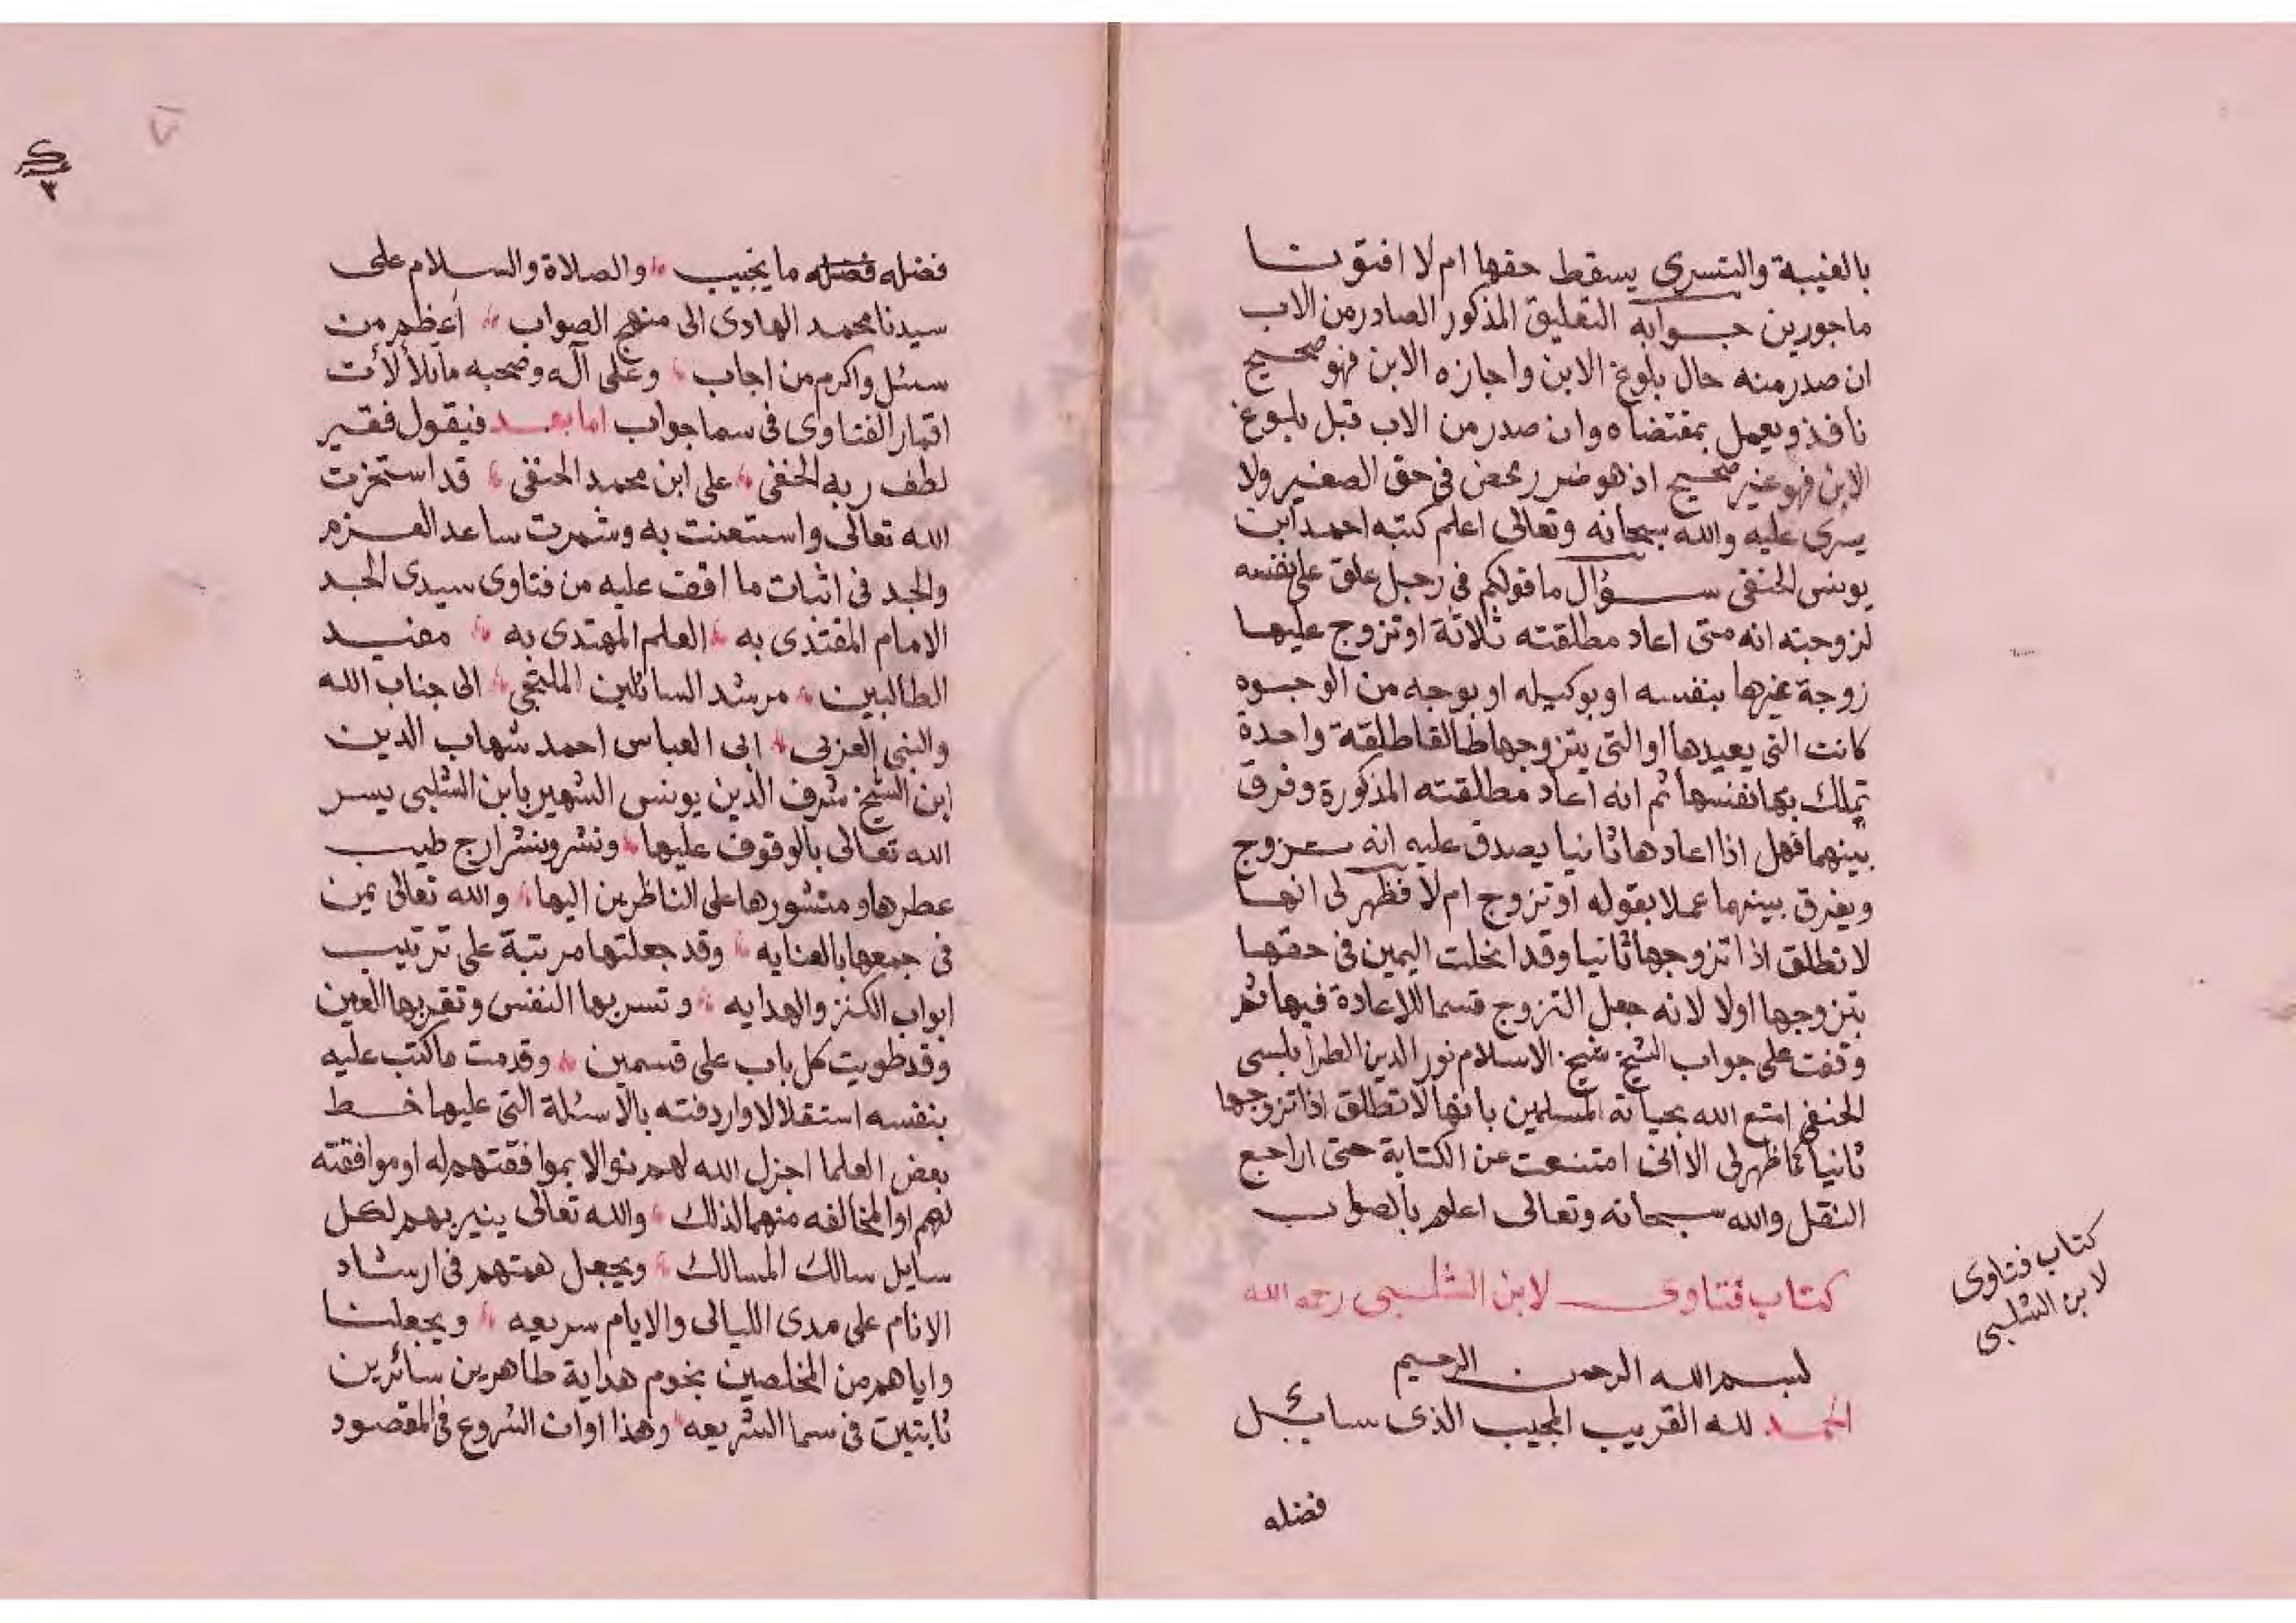 بالغيبة والتسرى يسقط حقها ام لا افتونا
ماجورين جوابه التعليق المذكور الصادر من الاب
ان صدر منه حال بلوغ الابن واجازه الابن فهو صحيح
نافذ ويعمل بمقتضاه وان صدر من الاب قبل بلوغ
الابن فهو غير صحيح اذ هو ضرر محض فى حق الصغير ولا
يسرى عليه والله سبحانه وتعالى اعلم كتبه احمد ابن
يونس الحنفى سؤال ما قولكم فى رجل علق على نفسه
لزوجته انه متى اعاد مطلقته ثلاثة او تزوج عليها
زوجة غيرها بنفسه او بوكيله او بوجه من الوجوه
كانت التى يعيدها او التى يتزوجها طالقا طلقة واحدة
تملك بها نفسها ثم انه اعاد مطلقته المذكورة وفرق
بينهما فهل اذا اعادها ثانيا يصدق عليه انه تزوج
ويفرق بينهما عملا بقوله او تزوج ام لا فظهر لى انها
لا تطلق اذا تزوجها ثانيا وقد انحلت اليمين فى حقها
بتزوجها اولا لانه جعل التزوج قسما للاعادة فيها ثم
وقفت على جواب الشيخ شيخ الاسلام نور الدين الطرابلسى
الحنفى امتع الله بحياته المسلمين بانها لا تطلق اذا تزوجها
ثانيا كما ظهر لى الا انى امتنعت عن الكتابة حتى اراجع
النقل والله سبحانه وتعالى اعلم بالصواب
كتاب فتاوى لابن الشلبى رحمه الله
بسم الله الرحمن الرحيم
الحمد لله القريب المجيب الذى سايل
فضله
كتاب فتاوى
لابن الشلبى
٣
فضله فضله ما يخيب والصلاة والسلام على
سيدنا محمد الهادى الى منهج الصواب أعظم من
سئل واكرم من اجاب وعلى آله وصحبه ما تلألأت
اقمار الفتاوى فى سما جواب اما بعد فيقول فقير
لطف ربه الخفى على ابن محمد الحنفى قد استخرت
الله تعالى واستعنت به وشمرت ساعد العزم
والجد فى اثبات ما اقف عليه من فتاوى سيدى الجد
الامام المقتدى به العلم المهتدى به مفيد
الطالبين مرشد السائلين الملتجى الى جناب الله
والنبى العربى ابى العباس احمد شهاب الدين
ابن الشيخ شرف الدين يونس الشهير بابن الشلبى يسر
الله تعالى بالوقوف عليها ونشر ارج طيب
عطرها ومنشورها على الناظرين اليها والله تعالى يمن
فى جمعها بالعنايه وقد جعلتها مرتبة على ترتيب
ابواب الكنز والهدايه وتسر بها النفس وتقر بها العين
وقد طويت كل باب على قسمين وقدمت ما كتب عليه
بنفسه استقلالا واردفته بالاسئلة التى عليها خط
بعض العلما اجزل الله لهم نوالا بموافقتهم له او موافقته
لهم او المخالفه منهما لذلك والله تعالى ينير بهم لكل
سايل سالك المسالك ويجعل همتهم فى ارشاد
الانام على مدى الليالى والايام سريعه ويجعلنا
واياهم من المخلصين نجوم هداية طاهرين سائرين
ثابتين فى سما الشريعه وهذا اوان الشروع فى المقصود